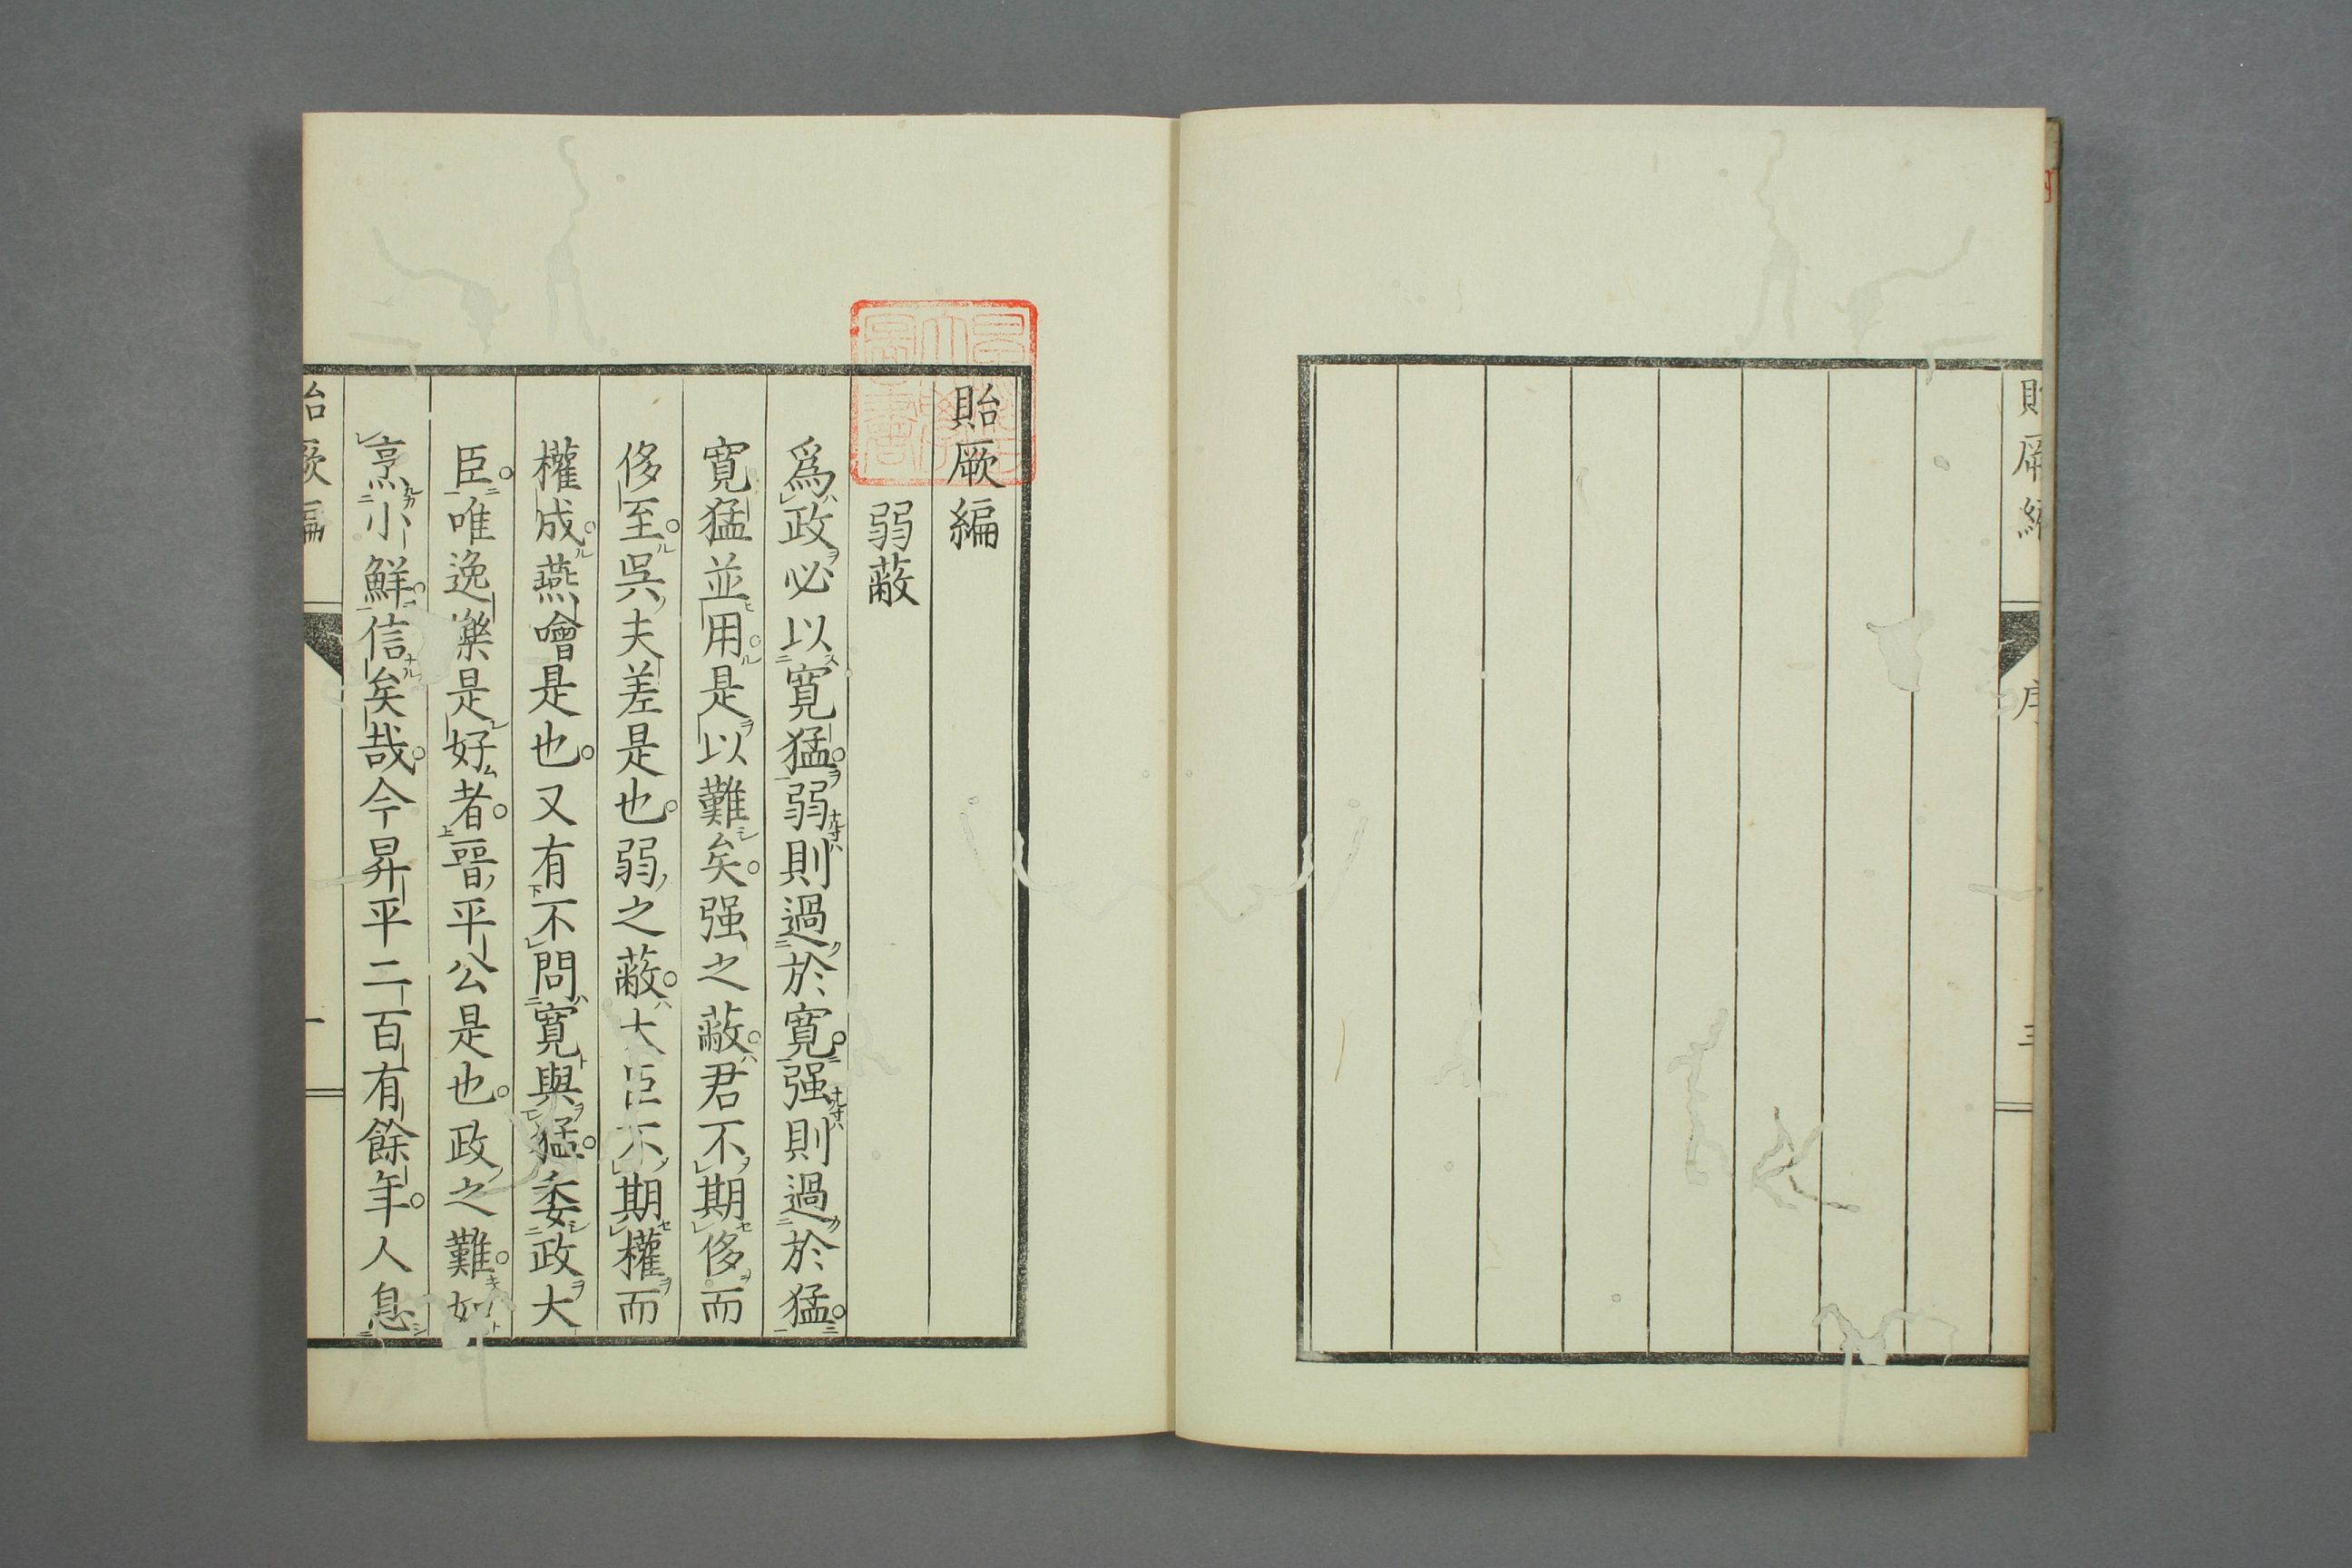 序
三
貽厥編
弱蔽
爲政必以寛猛。弱則過於寛。强則過於猛。
寛猛並用。是以難矣。强之蔽。君不期侈而
侈至。吳夫差是也。弱之蔽。大臣不期權而
權成。燕噲是也。又有不問寛與猛。委政大
臣。唯逸樂是好者。晉平公是也。政之難。如
烹小鮮。信矣哉。今昇平二百有餘年。人息
一